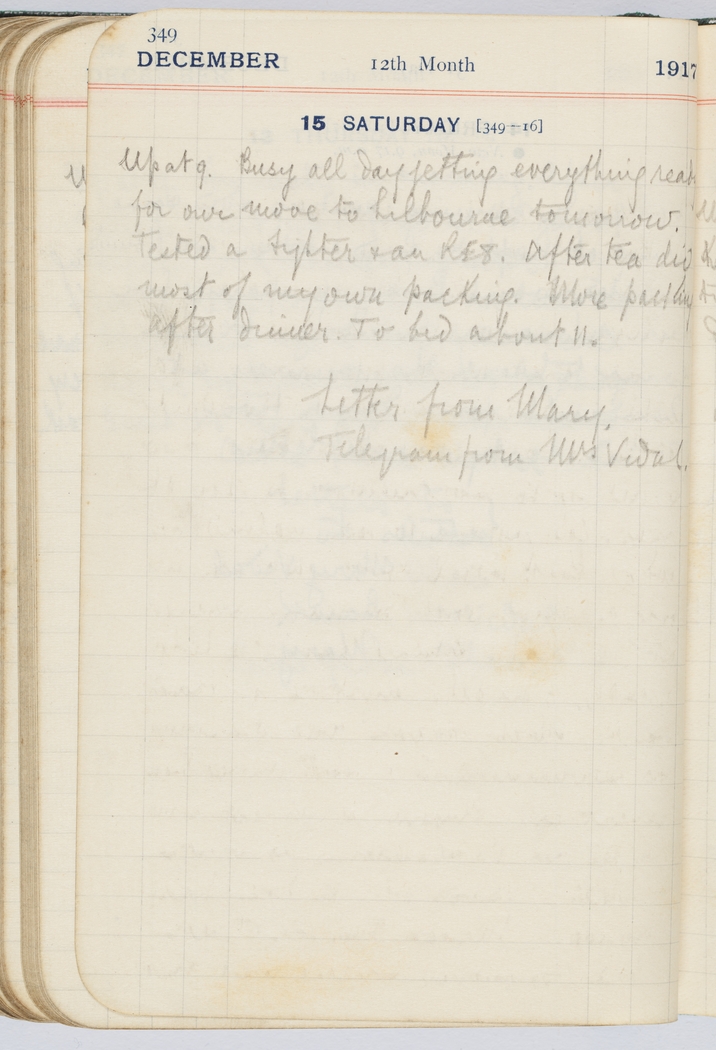 349
DECEMBER 12th Month 1917
15 SATURDAY [349-16]
Up at 9. Busy all day getting everything ready
for our move to Lilbourne tomorrow.
Tested a fighter & an RE8. After tea did
most of my own packing. More packing
after dinner. To bed about 11.
Letter from Mary.
Telegram from Mrs Vidal.